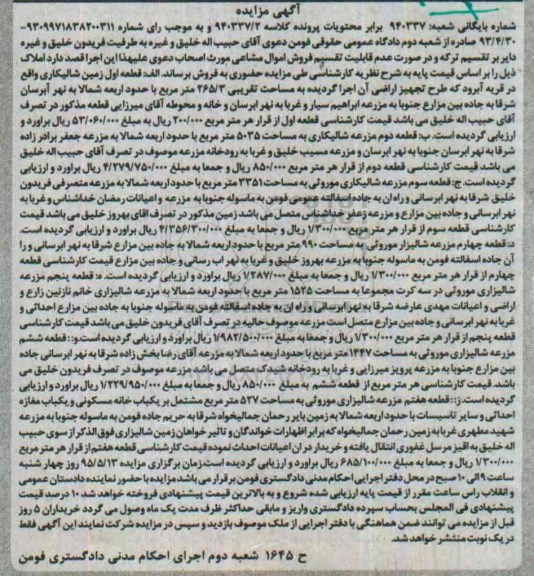 آگهی مزایده
شماره بایگانی شعبه: ۹۴۰۳۳۷ برابر محتویات پرونده کلاسه ۹۴۰۳۳۷/۲ و به موجب رای شماره ۹۳۰۹۹۷۱۸۳۸۲۰۰۳۱۱-
۹۳/۴/۳۰ صادره از شعبه دوم دادگاه عمومی حقوقی فومن دعوی آقای حبیب اله خلیق و غیره به طرفیت فریدون خلیق و غیره
دایر بر تقسیم ترکه و در صورت عدم قابلیت تقسیم فروش اموال مشاعی مورث اصحاب دعوی علیهذا این اجرا قصد دارد املاک
ذیل را بر اساس قیمت پایه به شرح نظریه کارشناسی طی مزایده حضوری به فروش برساند. الف: قطعه اول زمین شالیکاری واقع
در قریه آبرود که طرح تجهیز اراضی آن اجرا گردیده به مساحت تقریبی ۲۶۵/۳ متر مربع با حدود اربعه شمالا به نهر آبرسان
شرقا به جاده بین مزارع جنوبا به مزرعه ابراهیم سیار و غربا به نهر ابرسان و خانه و محوطه آقای میرزایی قطعه مذکور در تصرف
آقای حبیب اله خلیق می باشد قیمت کارشناسی قطعه اول از قرار هر متر مربع ۲۰۰/۰۰۰ ریال به مبلغ ۵۳/۰۶۰/۰۰۰ ریال براورد و
ارزیابی گردیده است. ب: قطعه دوم مزرعه شالیکاری به مساحت ۵۰۳۵ متر مربع با حدود اربعه شمالا به مزرعه جعفر برادر زاده
شرقا به نهر ابرسان جنوبا به نهر ابرسان و مزرعه مسیب خلیق و غربا به رودخانه مزرعه موصوف در تصرف آقای حبیب اله خلیق
می باشد قیمت کارشناسی قطعه دوم از قرار هر متر مربع ۸۵۰/۰۰۰ ریال و جمعا به مبلغ ۴/۲۷۹/۷۵۰/۰۰۰ ریال براورد و ارزیابی
گردیده است. ج: قطعه سوم مزرعه شالیکاری موروثی به مساحت ۳۳۵۱ متر مربع با حدود اربعه شمالا به مزرعه متصرفی فریدون
خلیق شرقا به نهر ابرسانی و راه ان به جاده اسفالته عمومی فومن به ماسوله جنوبا به مزرعه و اعیانات رمضان خداشناس و غربا به
نهر ابرسانی و جاده بین مزارع و مزرعه جعفر خداشناس متصل می باشد زمین مذکور در تصرف اقای بهروز خلیق می باشد قیمت
کارشناسی قطعه سوم از قرار هر متر مربع ۱/۳۰۰/۰۰۰ ریال و جمعا به مبلغ ۴/۳۵۶/۳۰۰/۰۰۰ ریال براورد و ارزیابی گردیده است.
د: قطعه چهارم مزرعه شالیزار موروثی به مساحت ۹۹۰ متر مربع با حدود اربعه شمالا به جاده بین مزارع شرقا به نهر ابرسانی و راه
آن جاده اسفالته فومن به ماسوله جنوبا به مزرعه بهروز خلیق و غربا به نهر اب رسانی و جاده بین مزارع قیمت کارشناسی قطعه
چهارم از قرار هر متر مربع ۱/۳۰۰/۰۰۰ ریال و جمعا به مبلغ ۱/۲۸۷/۰۰۰ ریال براورد و ارزیابی گردیده است. ه: قطعه پنجم مزرعه
شالیزاری موروثی در سه کرت مجموعا به مساحت ۱۵۲۵ متر مربع با حدود اربعه شمالا به مزرعه شالیزاری خانم نازنین زارع و
اراضی و اعیانات مهدی عارضه شرقا به نهر ابرسانی و راه ان به جاده اسفالته فومن به ماسوله جنوبا به جاده بین مزارع احداثی و
غربا به نهر ابرسانی و جاده بین مزارع متصل است مزرعه موصوف حالیه در تصرف آقای فریدون خلیق می باشد قیمت کارشناسی
قطعه پنجم از قرار هر متر مربع ۱/۳۰۰/۰۰۰ ریال و جمعا به مبلغ ۱/۹۸۲/۵۰۰/۰۰۰ ریال براورد و ارزیابی گردیده است.و: قطعه ششم
مزرعه شالیزاری موروثی به مساحت ۱۴۴۷ متر مربع با حدود اربعه شمالا به مزرعه آقای رضا بخش زاده شرقا به نهر ابرسانی جاده
بین مزارع جنوبا به مزرعه پرویز میرزایی و غربا به رودخانه شیدک متصل می باشد مزرعه موصوف در تصرف فریدون خلیق می
باشد. قیمت کارشناسی هر متر مربع از قطعه ششم به مبلغ ۸۵۰/۰۰۰ ریال و جمعا به مبلغ ۱/۲۲۹/۹۵۰/۰۰۰ ریال براورد و ارزیابی
گردیده است. ز: قطعه هفتم مزرعه شالیزاری موروثی به مساحت ۵۲۷ متر مربع مشتمل بر یکباب خانه مسکونی و یکباب مغازه
احداثی و سایر تاسیسات با حدود اربعه شمالا به زمین بایر رحمان جمالیخواه شرقا به حریم جاده فومن به ماسوله جنوبا به مزرعه
شهید مطهری غربا به زمین رحمان جمالیخواه که برابر اظهارات خواندگان و تاثیر خواهان زمین شالیزاری فوق الذکر از سوی حبیب
اله خلیق به اقیز مرسل غفوری انتقال یافته و خریدار در ان اعیانات احداث نموده قیمت کارشناسی قطعه هفتم از قرار هر متر مربع
۱/۳۰۰/۰۰۰ ریال و جمعا به مبلغ ۶۸۵/۱۰۰/۰۰۰ ریال براورد و ارزیابی گردیده است.زمان برگزاری مزایده ۹۵/۵/۱۳ روز چهار شنبه
ساعت ۹ الی ۱۰ صبح در محل دفتر اجرایی احکام مدنی دادگستری فومن برقرار می باشد مزایده با حضور نماینده دادستان عمومی
و انقلاب راس ساعت مقرر از قیمت پایه ارزیابی شده شروع و به بالاترین قیمت پیشنهادی فروخته خواهد شد. ۱۰ درصد قیمت
پیشنهادی فی المجلس بحساب سپرده دادگستری واریز و مابقی حداکثر ظرف مدت یک ماه وصول می گردد خریداران ۵ روز
قبل از مزایده می توانند ضمن هماهنگی با دفتر اجرایی از ملک موصوف بازدید و سپس در مزایده شرکت نمایند این آگهی فقط
در یک نوبت منتشر خواهد شد.
ح ۱۶۴۵ شعبه دوم اجرای احکام مدنی دادگستری فومن